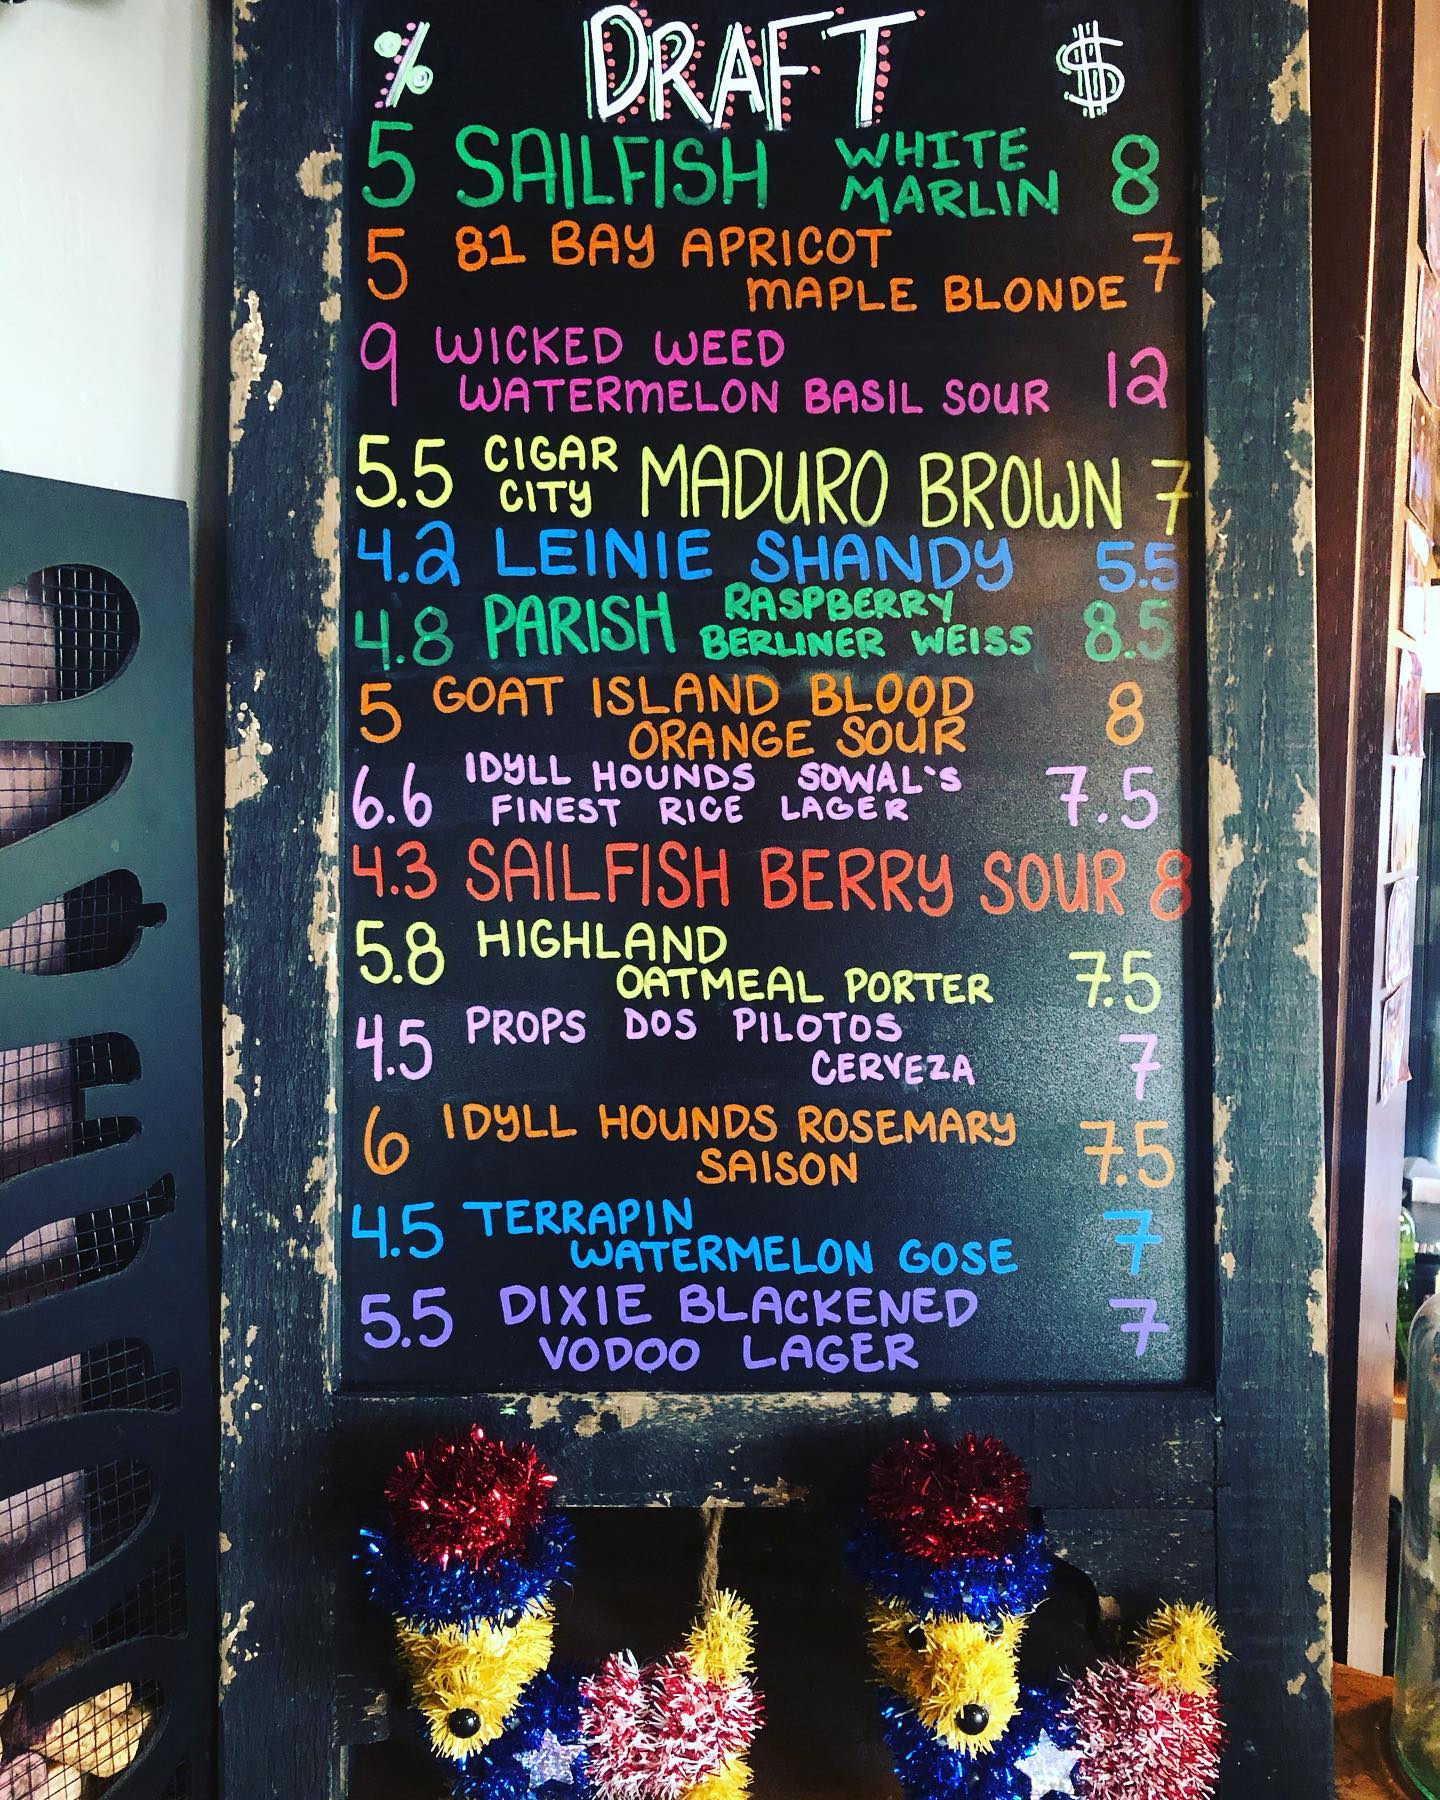 % DRAFT $
5 SAILFISH WHITE MARLIN 8
5 81 BAY APRICOT 7
MAPLE BLONDE
9 WICKED WEED 12
WATERMELON BASIL SOUR
5.5 CIGAR CITY MADURO BROWN 7
4.2 LEINIE SHANDY 5.5
4.8 PARISH RASPBERRY BERLINER WEISS 8.5
5 GOAT ISLAND BLOOD 8
ORANGE SOUR
6.6 IDYLL HOUNDS SOWAL'S 7.5
FINEST RICE LAGER
4.3 SAILFISH BERRY SOUR 8
5.8 HIGHLAND 7.5
OATMEAL PORTER
4.5 PROPS DOS PILOTOS 7
CERVEZA
6 IDYLL HOUNDS ROSEMARY 7.5
SAISON
4.5 TERRAPIN 7
WATERMELON GOSE
5.5 DIXIE BLACKENED 7
VODOO LAGER